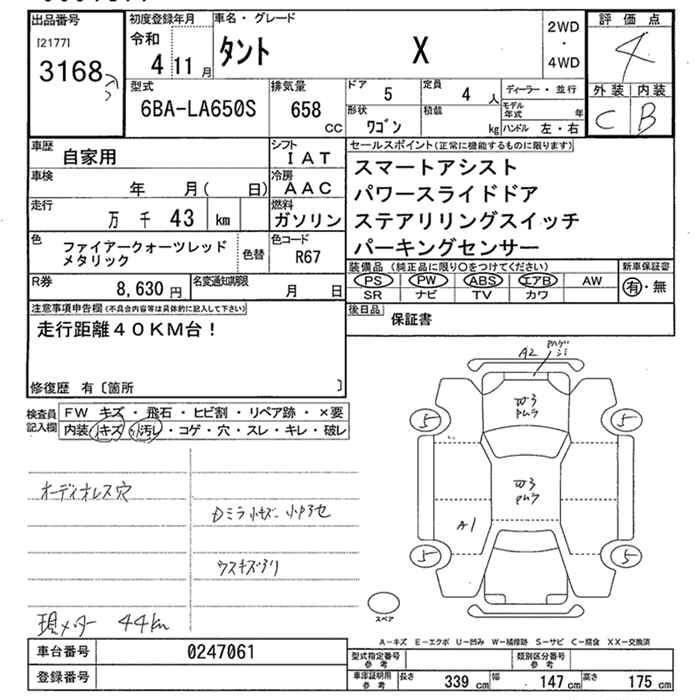 出品番号
[2177]
3168
初度登録年月
令和 4 11月
車名・グレード
タント X
2WD
・
4WD
評価点
4
外装 内装
C B
型式
6BA-LA650S
排気量
658 cc
ドア 5
定員 4 人
形状 ワゴン
積載 kg
ディーラー・並行
モデル年式 年
ハンドル 左・右
車歴 自家用
シフト IAT
車検 年 月( 日)
冷房 AAC
走行 万 千 43 km
燃料 ガソリン
色 ファイアークォーツレッド
メタリック
色替
色コード R67
R券 8,630 円
名変通知期限 月 日
セールスポイント(正常に機能するものに限ります)
スマートアシスト
パワースライドドア
ステアリリングスイッチ
パーキングセンサー
装備品 (純正品に限り○をつけてください)
PS PW ABS エアB AW
SR ナビ TV カワ
新車保証書
有・無
後日品 保証書
注意事項申告欄(不具合内容等は具体的に記入して下さい)
走行距離40KM台!
修復歴 有〔箇所 〕
検査員記入欄
FW キズ・飛石・ヒビ割・リペア跡・×要
内装 小キズ・小汚れ・コゲ・穴・スレ・キレ・破レ
オーディオレス穴
Dミラ小キズ
ウスキズ
現メーター 44km
A2
A1
5
5
5
5
スペア
A－キズ E－エクボ U－凹み W－補修跡 S－サビ C－腐食 XX－交換済
車台番号 0247061
登録番号
型式指定番号 参考
類別区分番号 参考
車庫証明用 参考
長さ 339 cm
幅 147 cm
高さ 175 cm